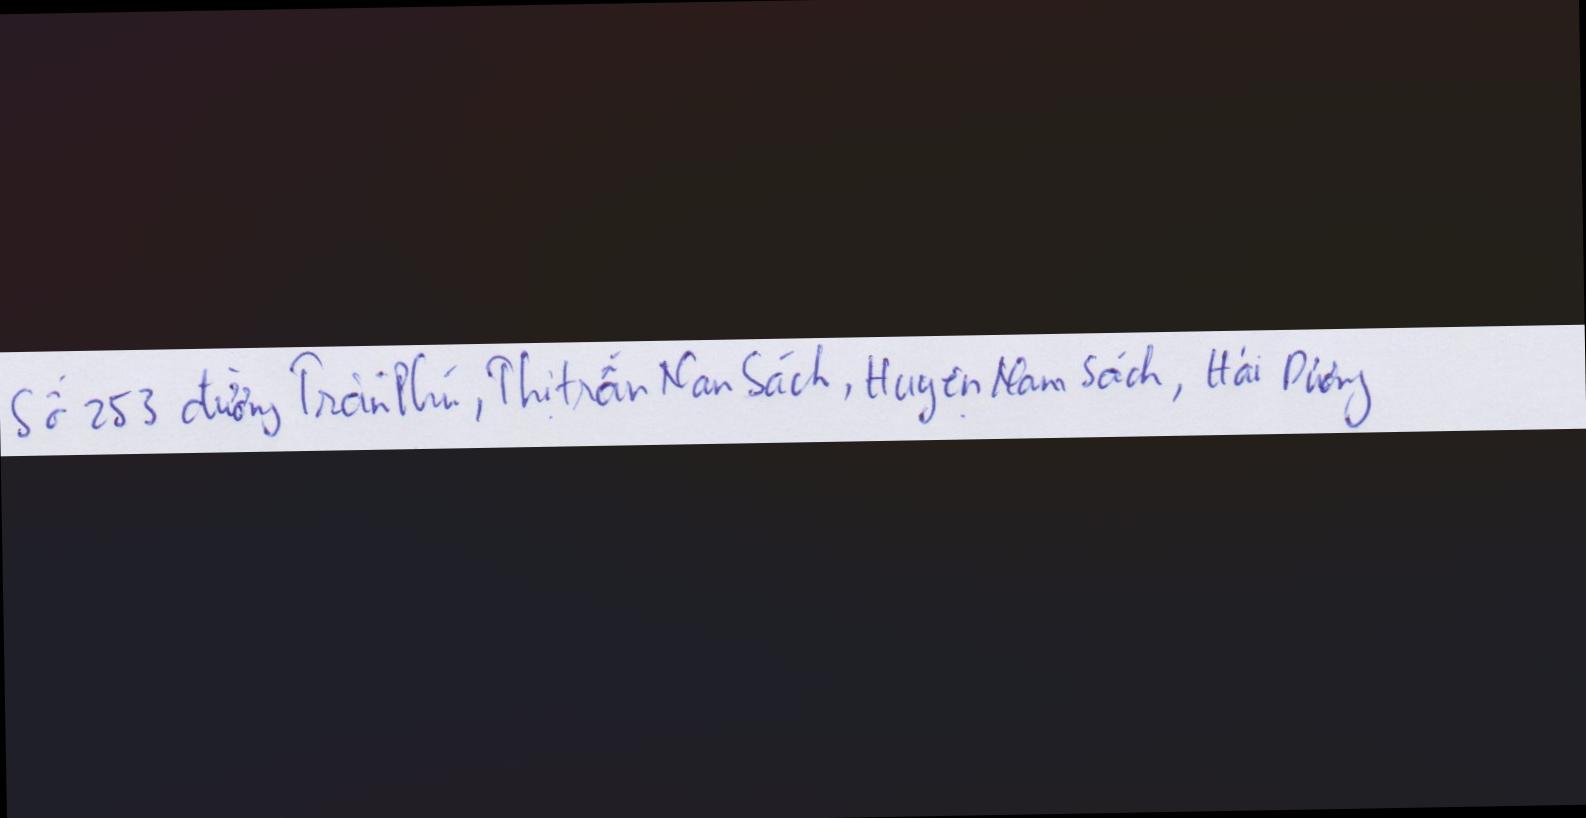 Số 253 đường Trần Phú, Thị trấn Nam Sách, Huyện Nam Sách, Hải Dương